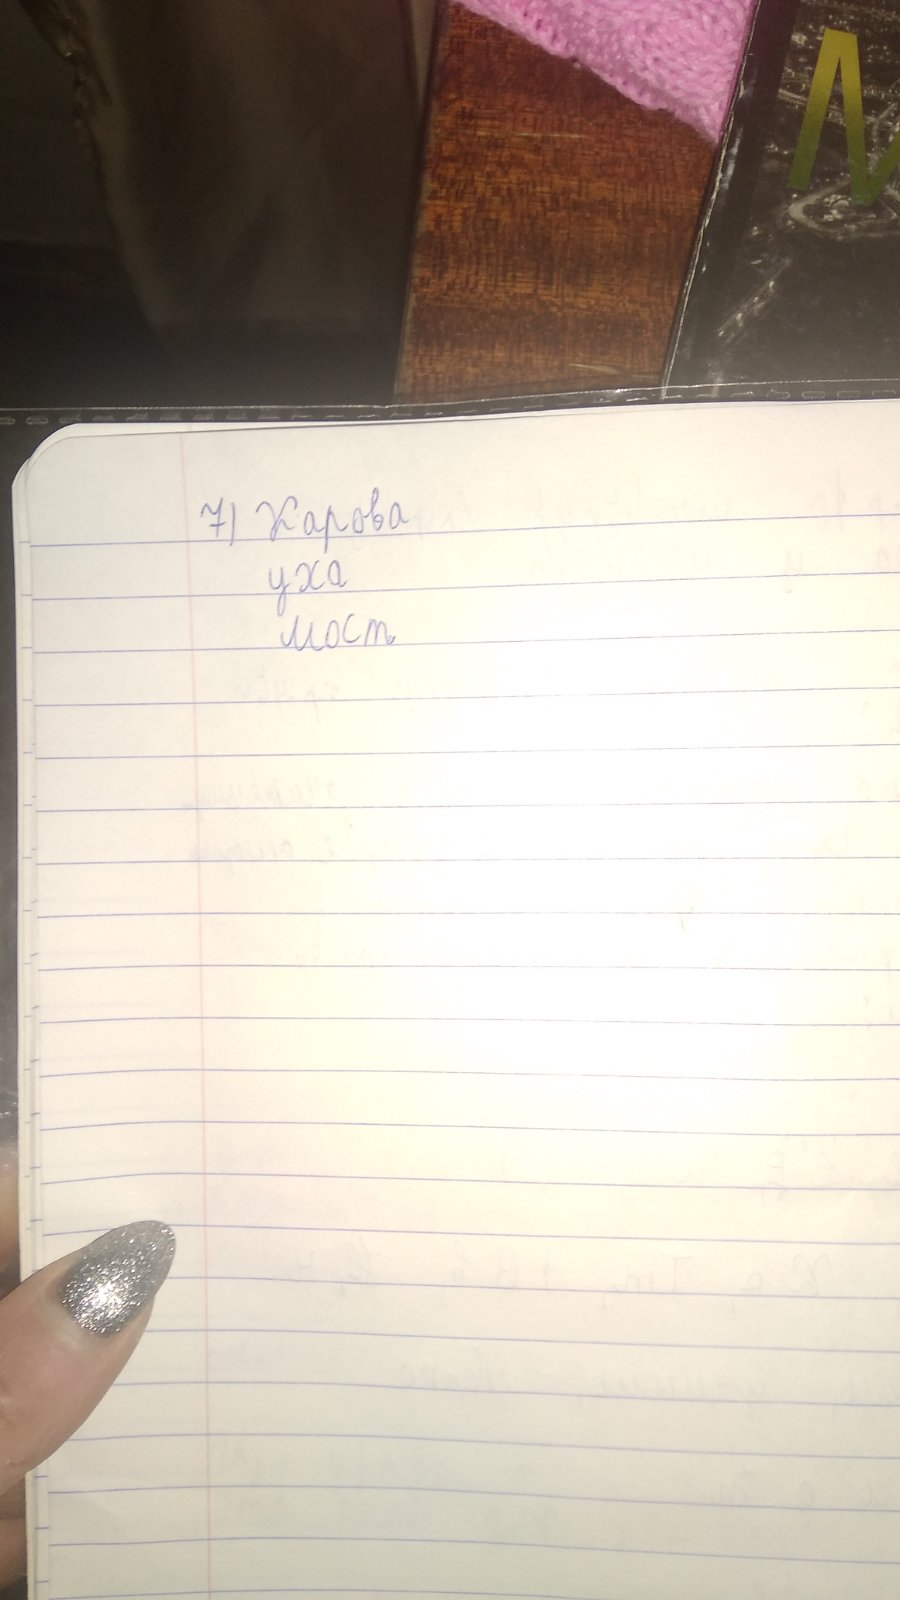 М
7) Карова
уха
мост